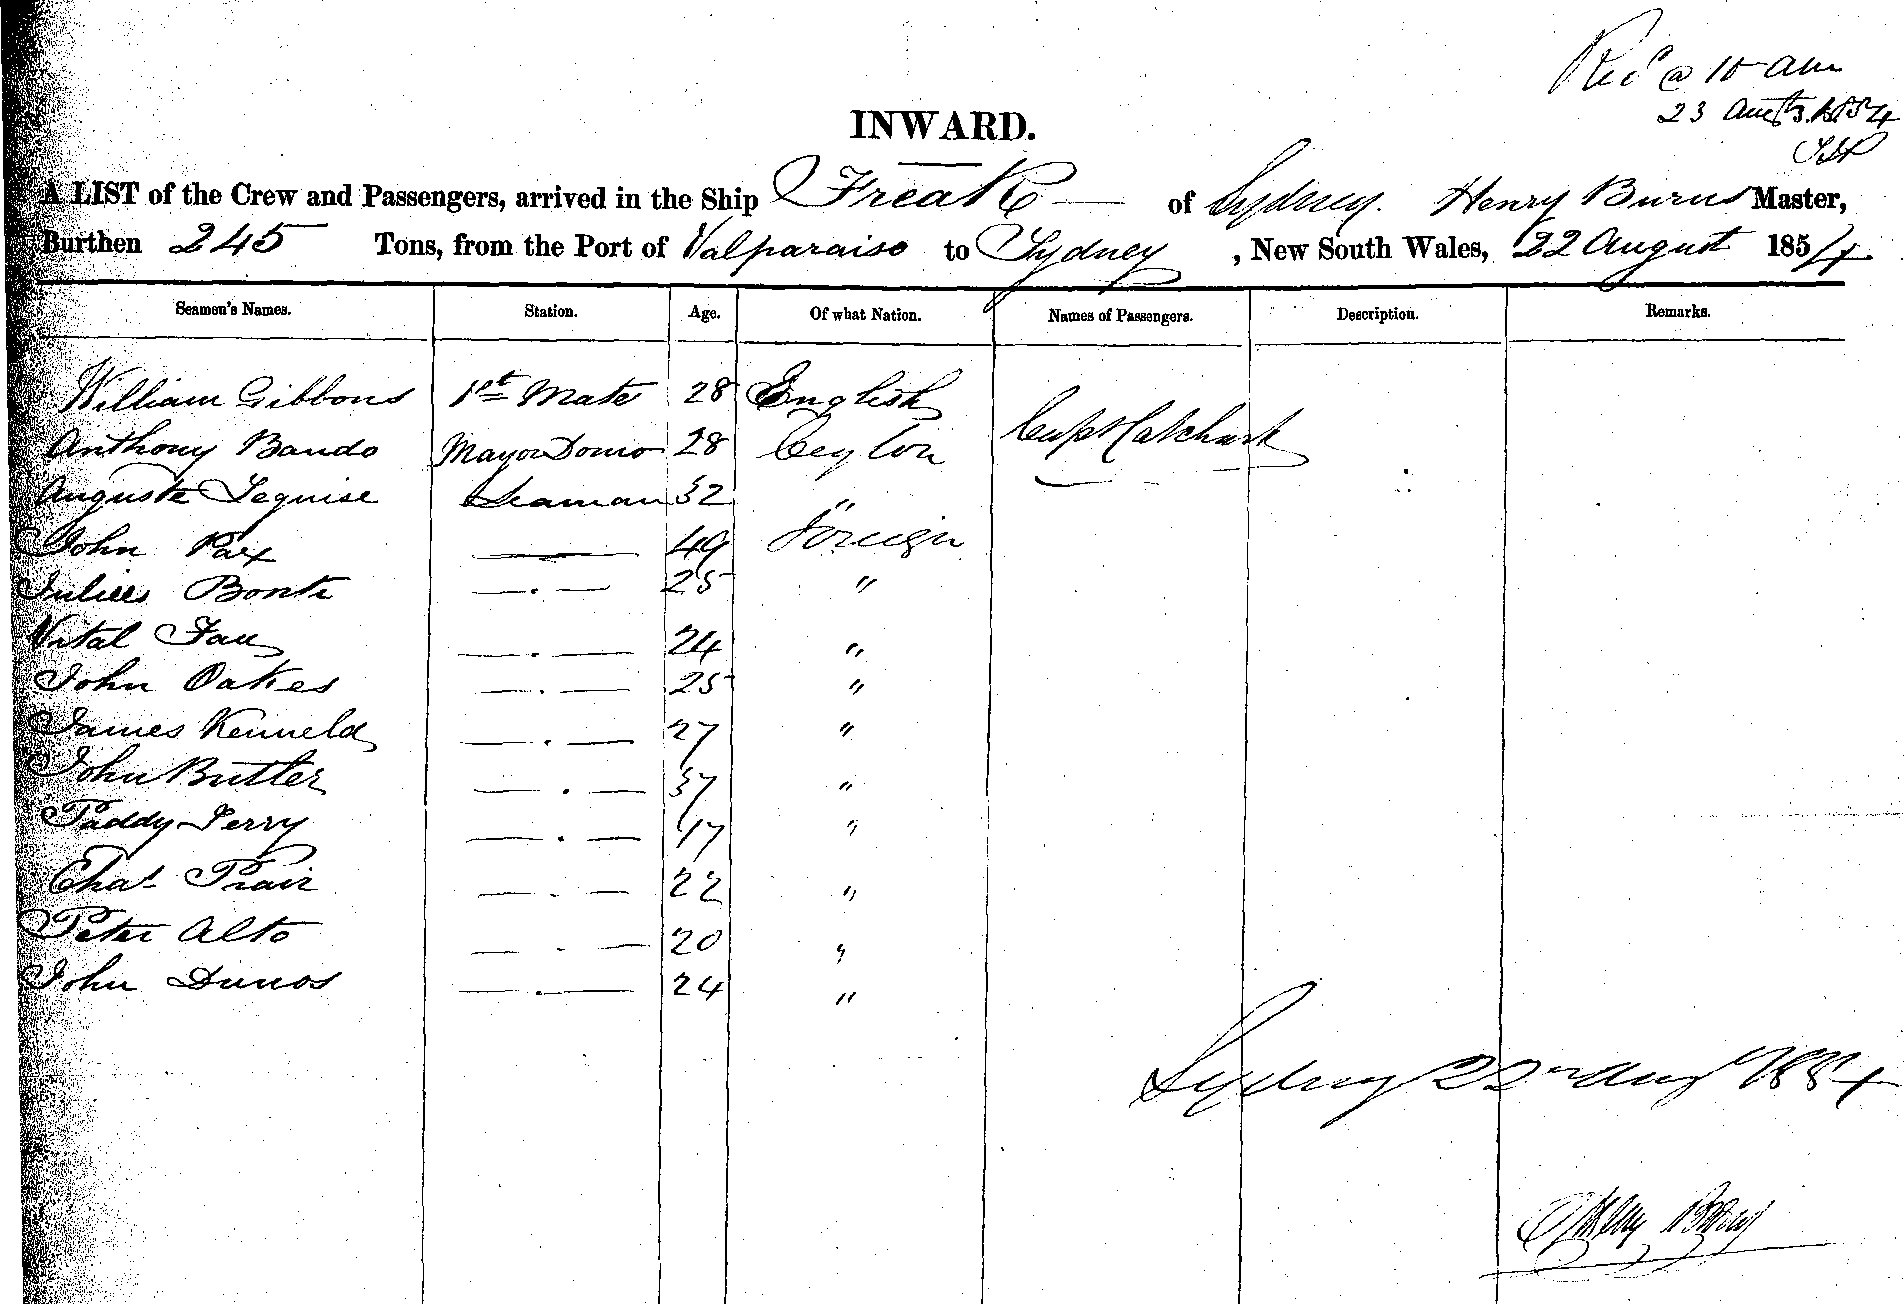 Recd @ 10 am
23 Augt 1854
INWARD.
A LIST of the Crew and Passengers, arrived in the Ship Freak of Sydney. Henry Burns Master,
Burthen 245 Tons, from the Port of Valparaiso to Sydney, New South Wales, 22 August 1854
Seamen's Names. Station. Age. Of what Nation. Names of Passengers. Description. Remarks.
William Gibbons 1st Mate 28 English
Anthony Bando Mayor Domo 28 Ceylon Capt
Auguste Lequise Seaman 32 "
John Pax —— 49 Foreign
Julies Bonte —.— 25 "
Vital Fau —.— 24 "
John Oakes —.— 25 "
James Kenneld —.— 27 "
John Butler —.— 37 "
Paddy Jerry —.— 47 "
Chas Prair —.— 22 "
Peter Alto —.— 20 "
John Dunos —.— 24 "
Sydney 22nd Aug 1854
Henry Burns